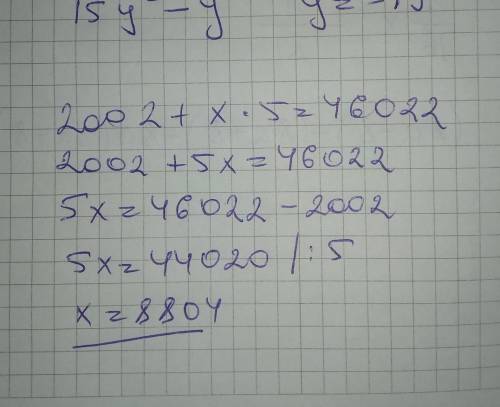 15y - y y = -15
2002 + x · 5 = 46022
2002 + 5x = 46022
5x = 46022 - 2002
5x = 44020 | : 5
x = 8804